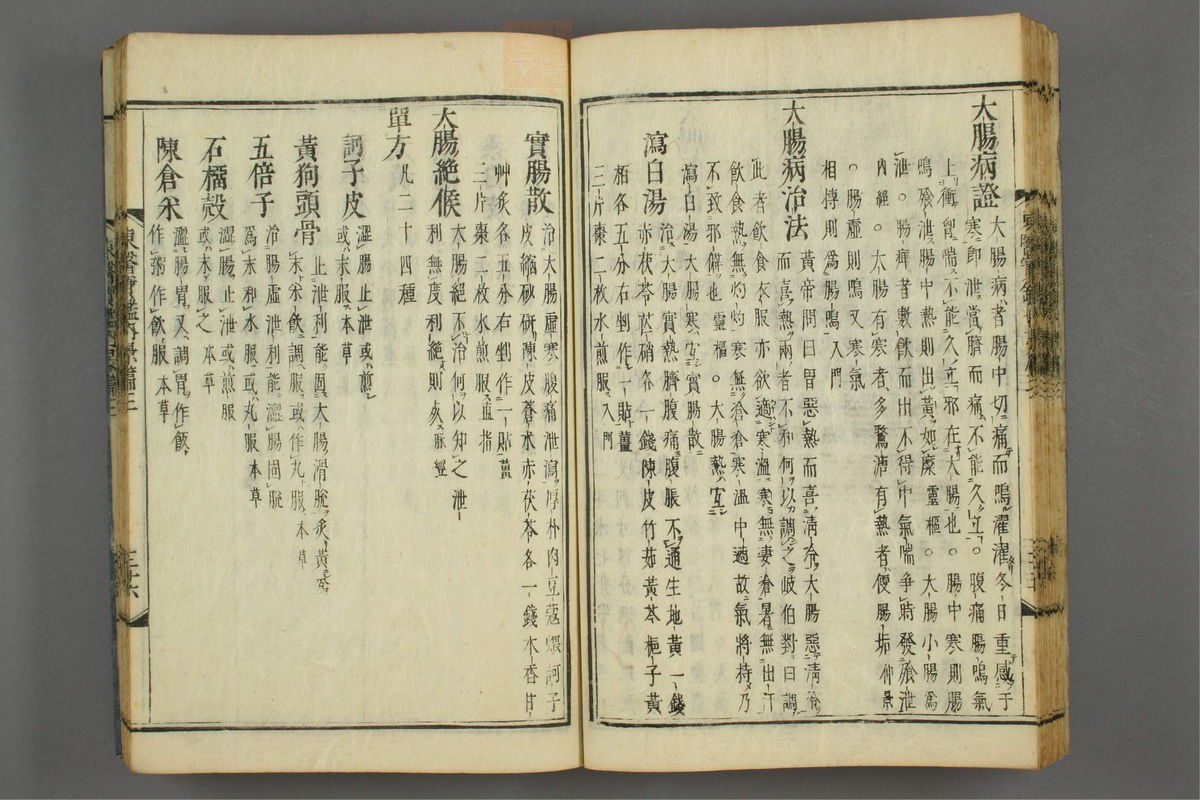 大腸病證 大腸病者腸中切痛而鳴濯濯冬日重感于
寒卽泄當臍而痛不能久立。腹痛腸鳴氣
上衝胷喘不能久立邪在大腸也。腸中寒則腸
鳴飱泄腸中熱則出黃如糜靈樞。大腸小腸爲
泄。腸痺者數飮而出不得中氣喘爭時發飱泄
內經。大腸有寒者多鶩溏有熱者便腸垢仲景
。腸虛則鳴又寒氣
相搏則爲腸鳴入門
大腸病治法 黃帝問曰胃惡熱而喜淸冷大腸惡淸冷
而喜熱兩者不和何以調之岐伯對曰調
此者飮食衣服亦欲適寒溫寒無凄滄暑無出汗
飮食熱無灼灼寒無滄滄寒溫中適故氣將持乃
不致邪僻也靈樞。大腸熱宜
瀉白湯大腸寒宜實腸散
瀉白湯 治大腸實熱臍腹痛腹脹不通生地黃一錢
赤茯苓芒硝各一錢陳皮竹茹黃芩梔子黃
栢各五分右剉作一貼薑
三片棗二枚水煎服入門
實腸散 治大腸虛寒腹痛泄瀉厚朴肉豆蔲煨訶子
皮縮砂硏陳皮蒼朮赤茯苓各一錢木香甘
艸炙各五分右剉作一貼薑
三片棗二枚水煎服直指
大腸絶候 大腸絶不治何以知之泄
利無度利絶則死脉經
單方 凡二十四種
訶子皮 澀腸止泄或煎
或末服本草
黃狗頭骨 止泄利能固大腸滑脫炙黃爲
末米飮調服或作丸服本草
五倍子 治腸虛泄利能澀腸固脫
爲末和水服或丸服本草
石榴殼 澀腸止泄或煎服
或末服之本草
陳倉米 澀腸胃又調胃作飯
作粥作飮服本草
東醫寶鑑內景篇三
三十六